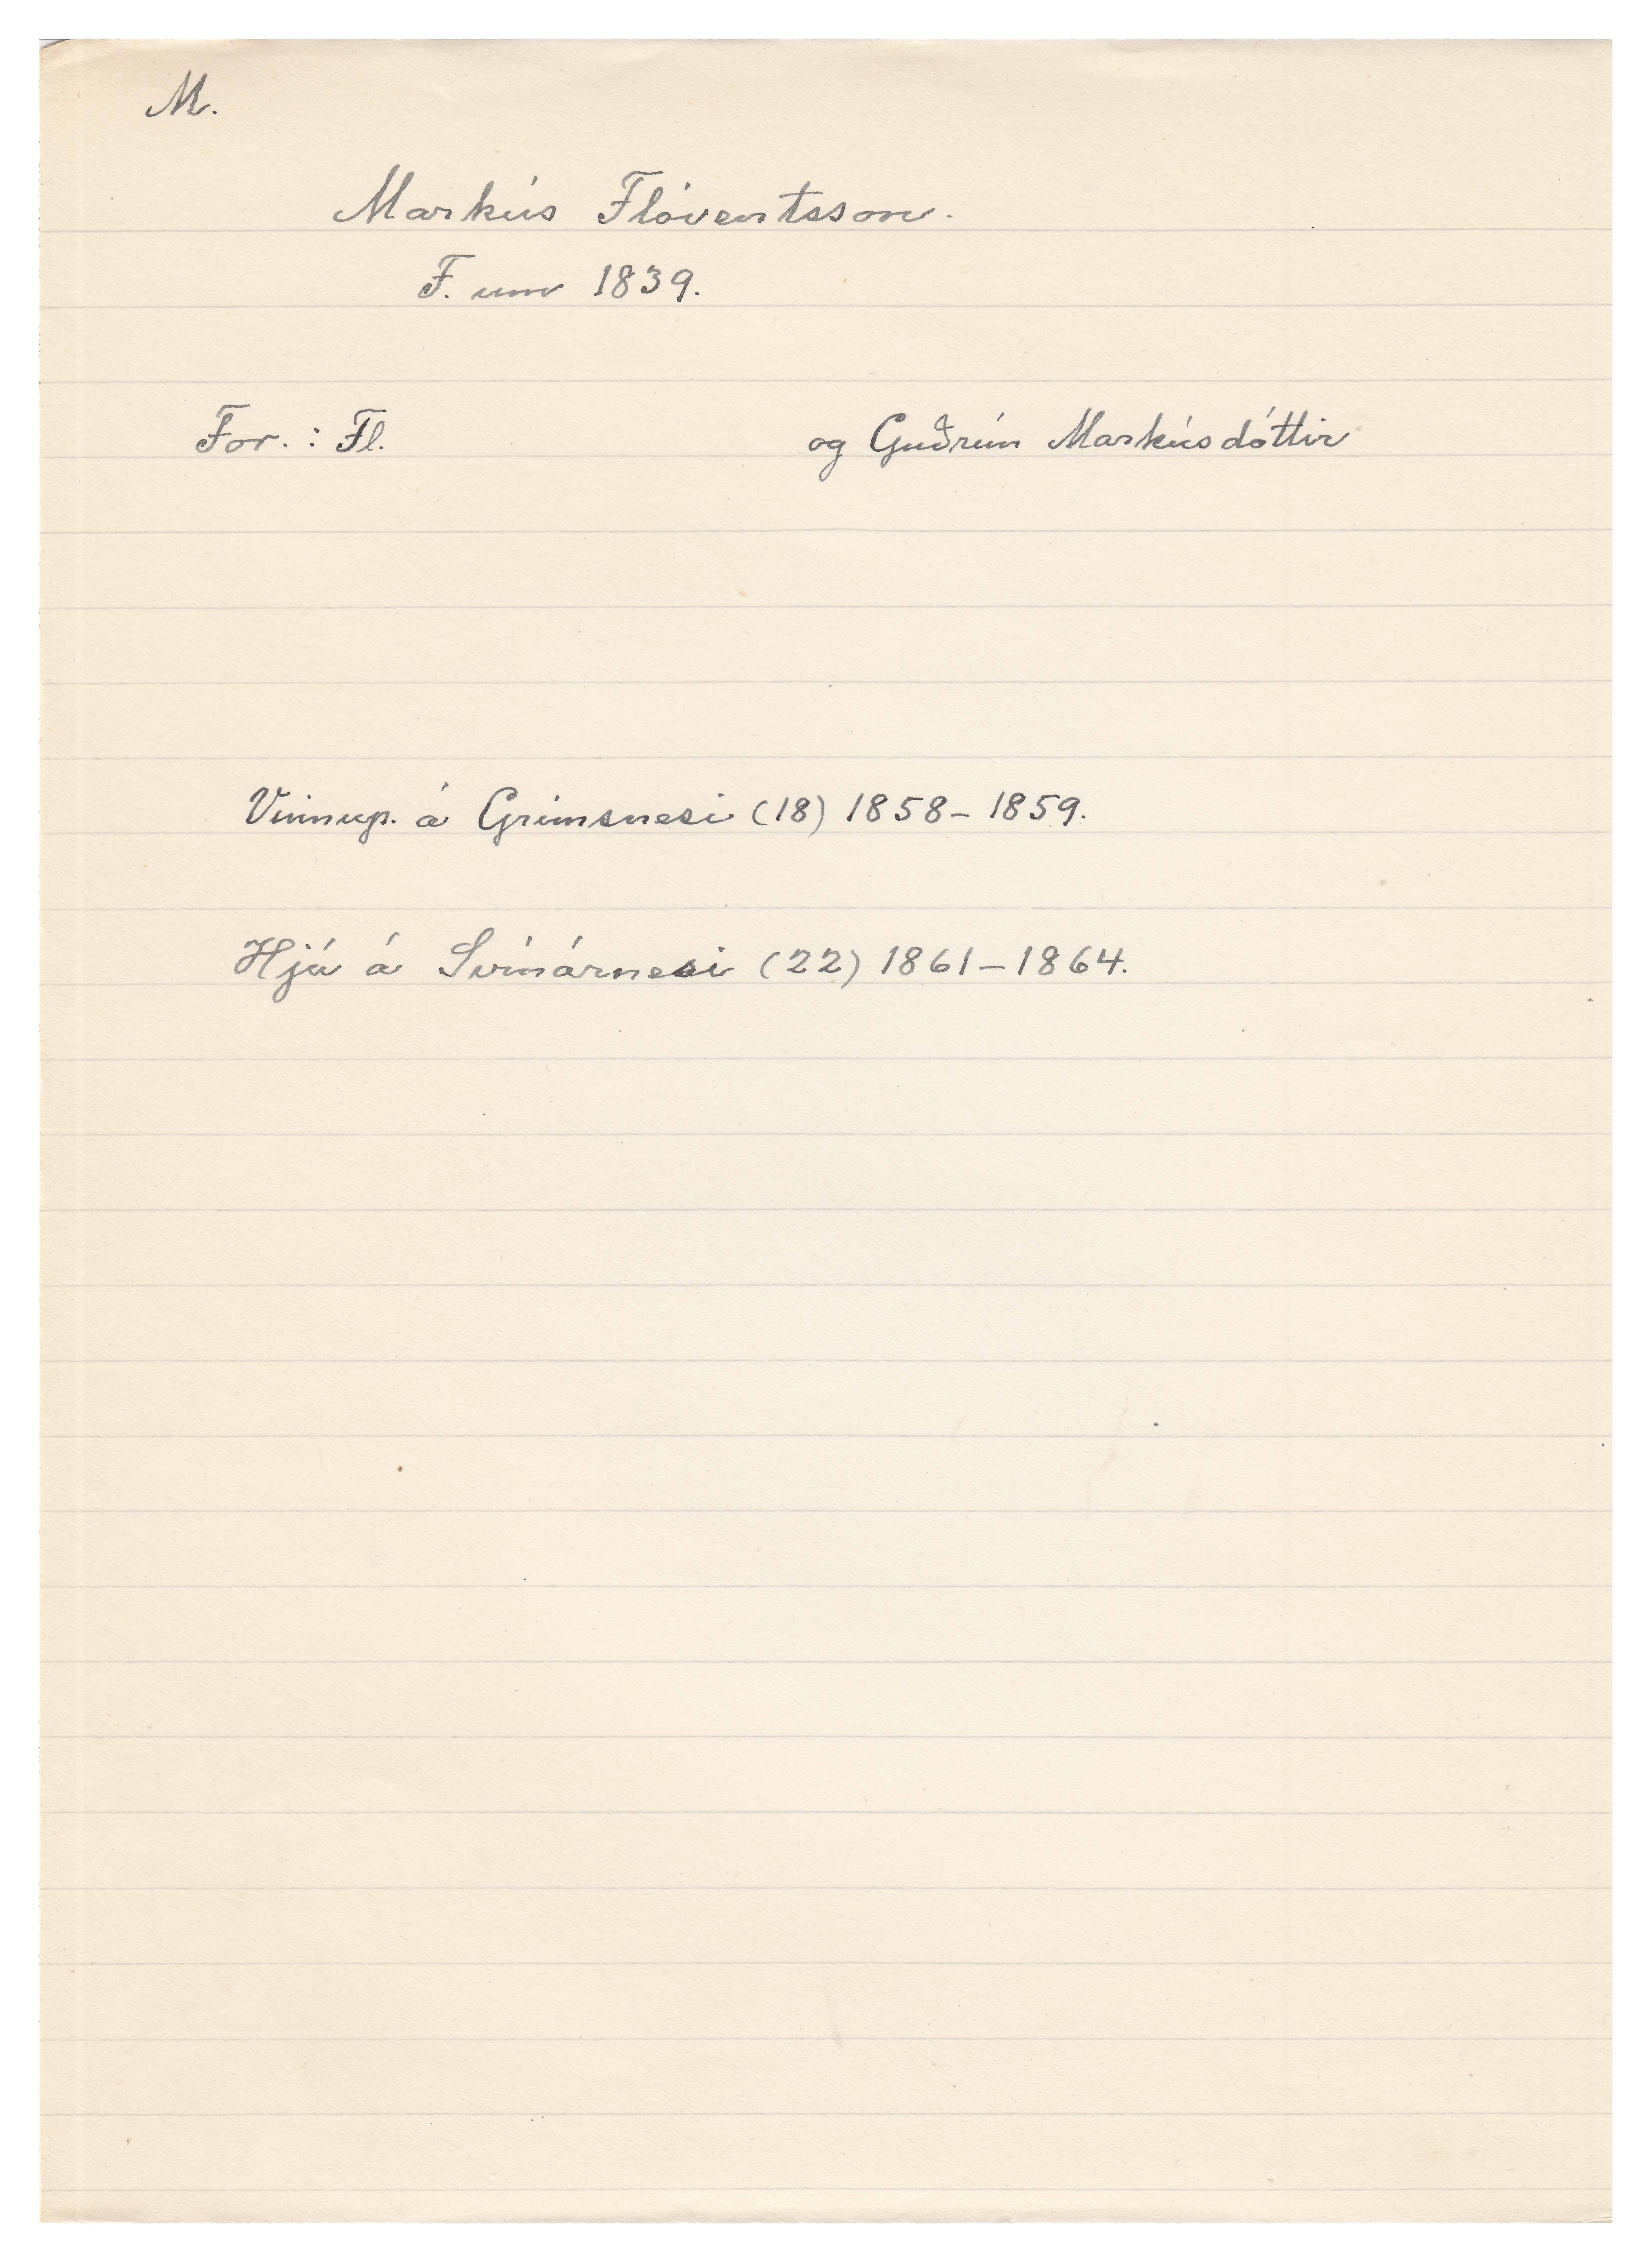 M.
Markús Flóventsson.
F. um 1839.
For.: Fl. og Guðrún Markúsdóttir
Vinnup. á Grímsnesi (18) 1858-1859.
Hjá á Svínárnesi (22) 1861-1864.